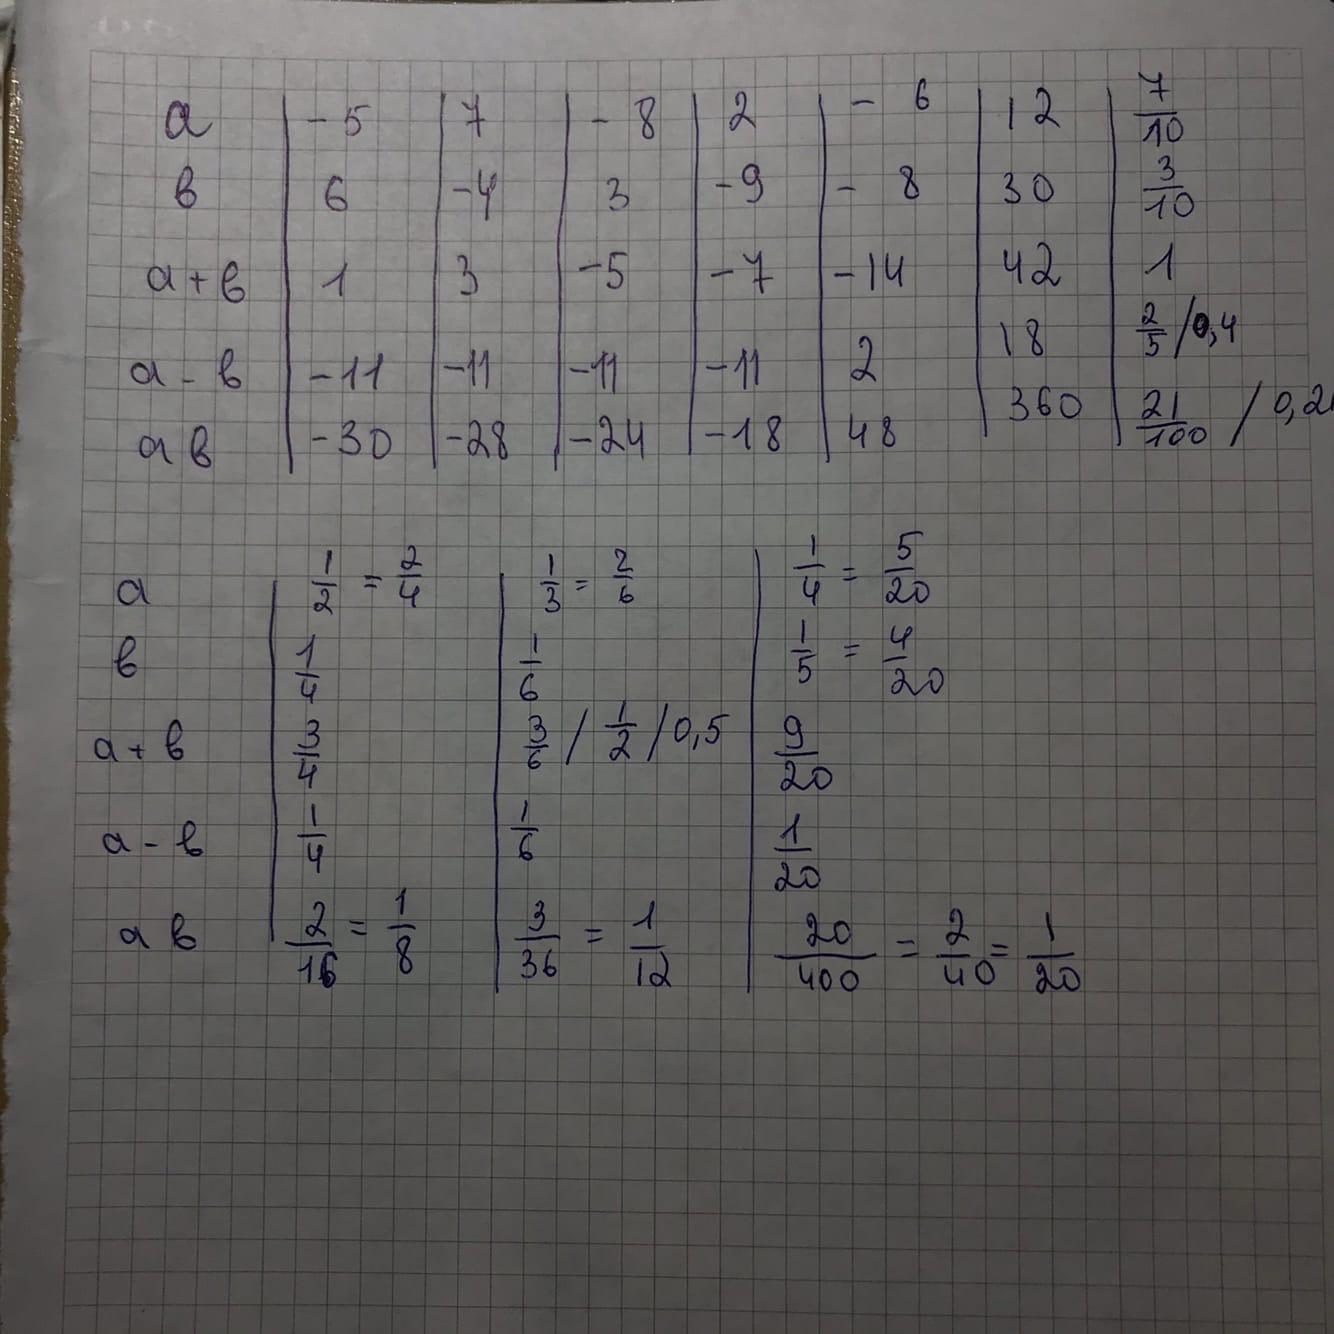 a | -5 | 7 | -8 | 2 | - 6 | 12 | 7/10
в | 6 | -4 | 3 | -9 | - 8 | 30 | 3/10
a+в | 1 | 3 | -5 | -7 | -14 | 42 | 1
a-в | -11 | -11 | -11 | -11 | 2 | 18 | 2/5 / 0,4
aв | -30 | -28 | -24 | -18 | 48 | 360 | 21/100 / 0,21
a | 1/2 = 2/4 | 1/3 = 2/6 | 1/4 = 5/20
в | 1/4 | 1/6 | 1/5 = 4/20
a+в | 3/4 | 3/6 / 1/2 / 0,5 | 9/20
a-в | 1/4 | 1/6 | 1/20
aв | 2/16 = 1/8 | 3/36 = 1/12 | 20/400 = 2/40 = 1/20